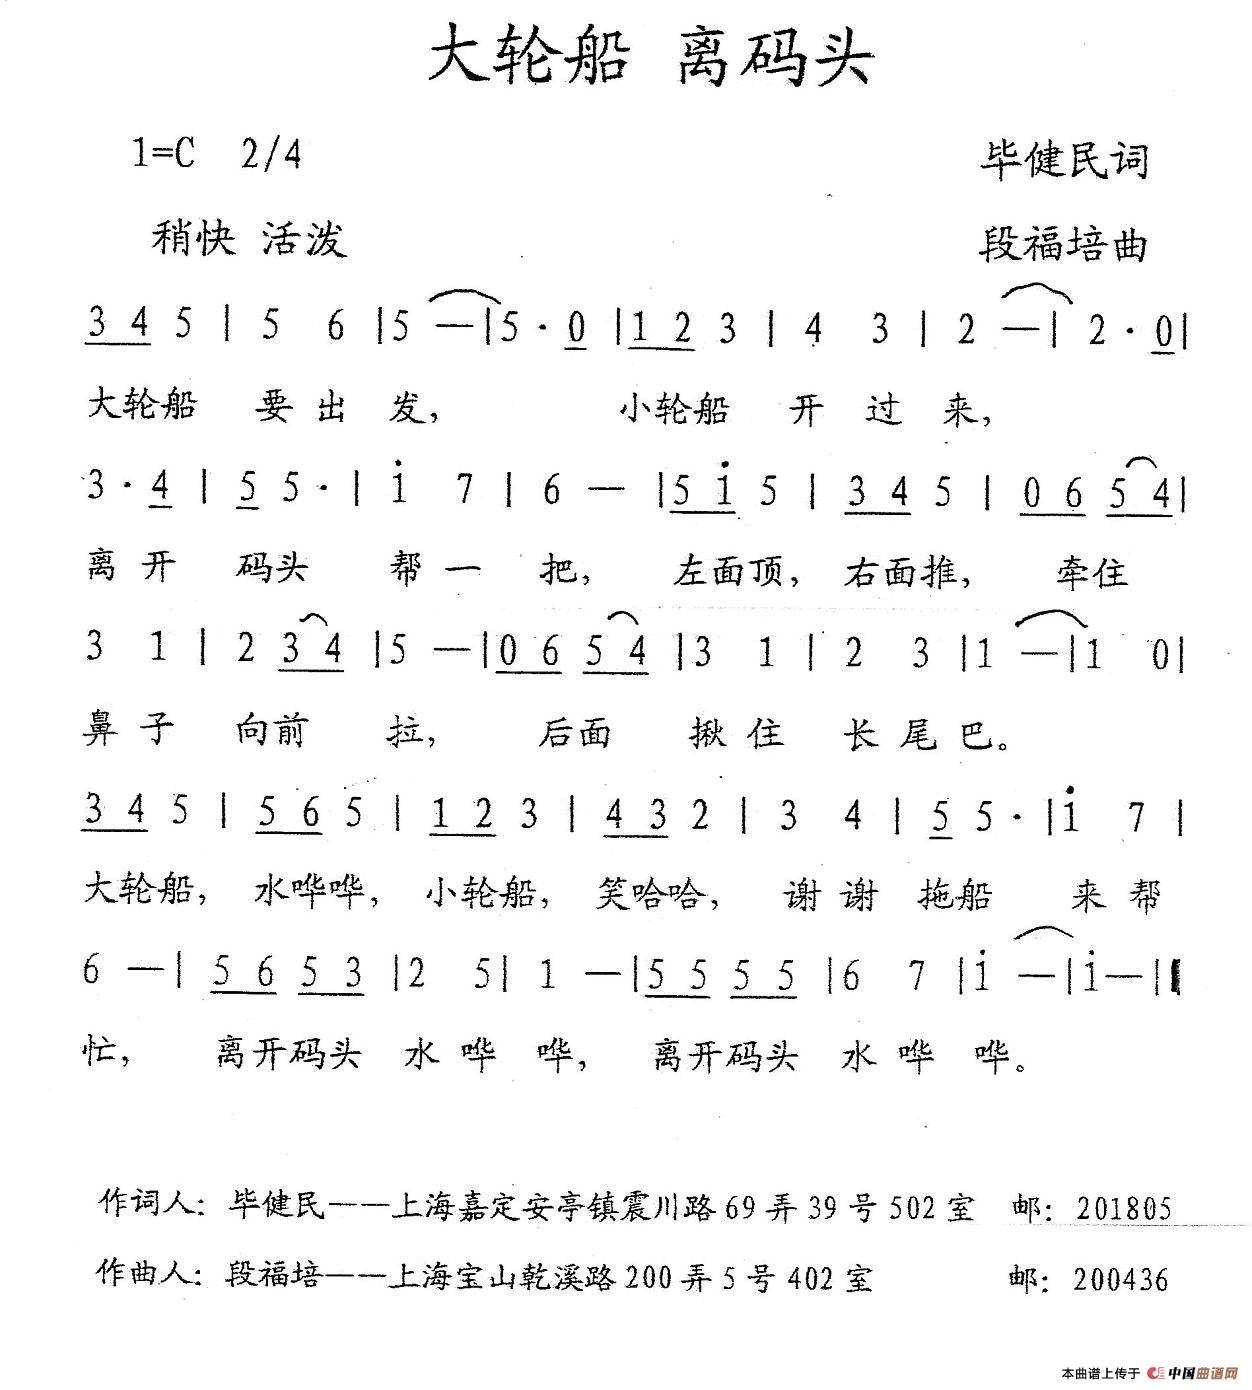 大轮船 离码头
1=C 2/4 毕健民词
稍快 活泼 段福培曲
3 4 5 | 5 6 | 5 — | 5 · 0 | 1 2 3 | 4 3 | 2 — | 2 · 0 |
大轮船 要 出 发, 小轮船 开 过 来,
3 · 4 | 5 5 · | i 7 | 6 — | 5 i 5 | 3 4 5 | 0 6 5 4 |
离 开 码头 帮 一 把, 左面顶, 右面推, 牵住
3 1 | 2 3 4 | 5 — | 0 6 5 4 | 3 1 | 2 3 | 1 — | 1 0 |
鼻 子 向前 拉, 后面 揪 住 长 尾 巴。
3 4 5 | 5 6 5 | 1 2 3 | 4 3 2 | 3 4 | 5 5 · | i 7 |
大轮船, 水哗哗, 小轮船, 笑哈哈, 谢 谢 拖船 来 帮
6 — | 5 6 5 3 | 2 5 | 1 — | 5 5 5 5 | 6 7 | i — | i — ‖
忙, 离开码头 水 哗 哗, 离开码头 水 哗 哗。
作词人: 毕健民——上海嘉定安亭镇震川路 69 弄 39 号 502 室 邮: 201805
作曲人: 段福培——上海宝山乾溪路 200 弄 5 号 402 室 邮: 200436
本曲谱上传于 中国曲谱网